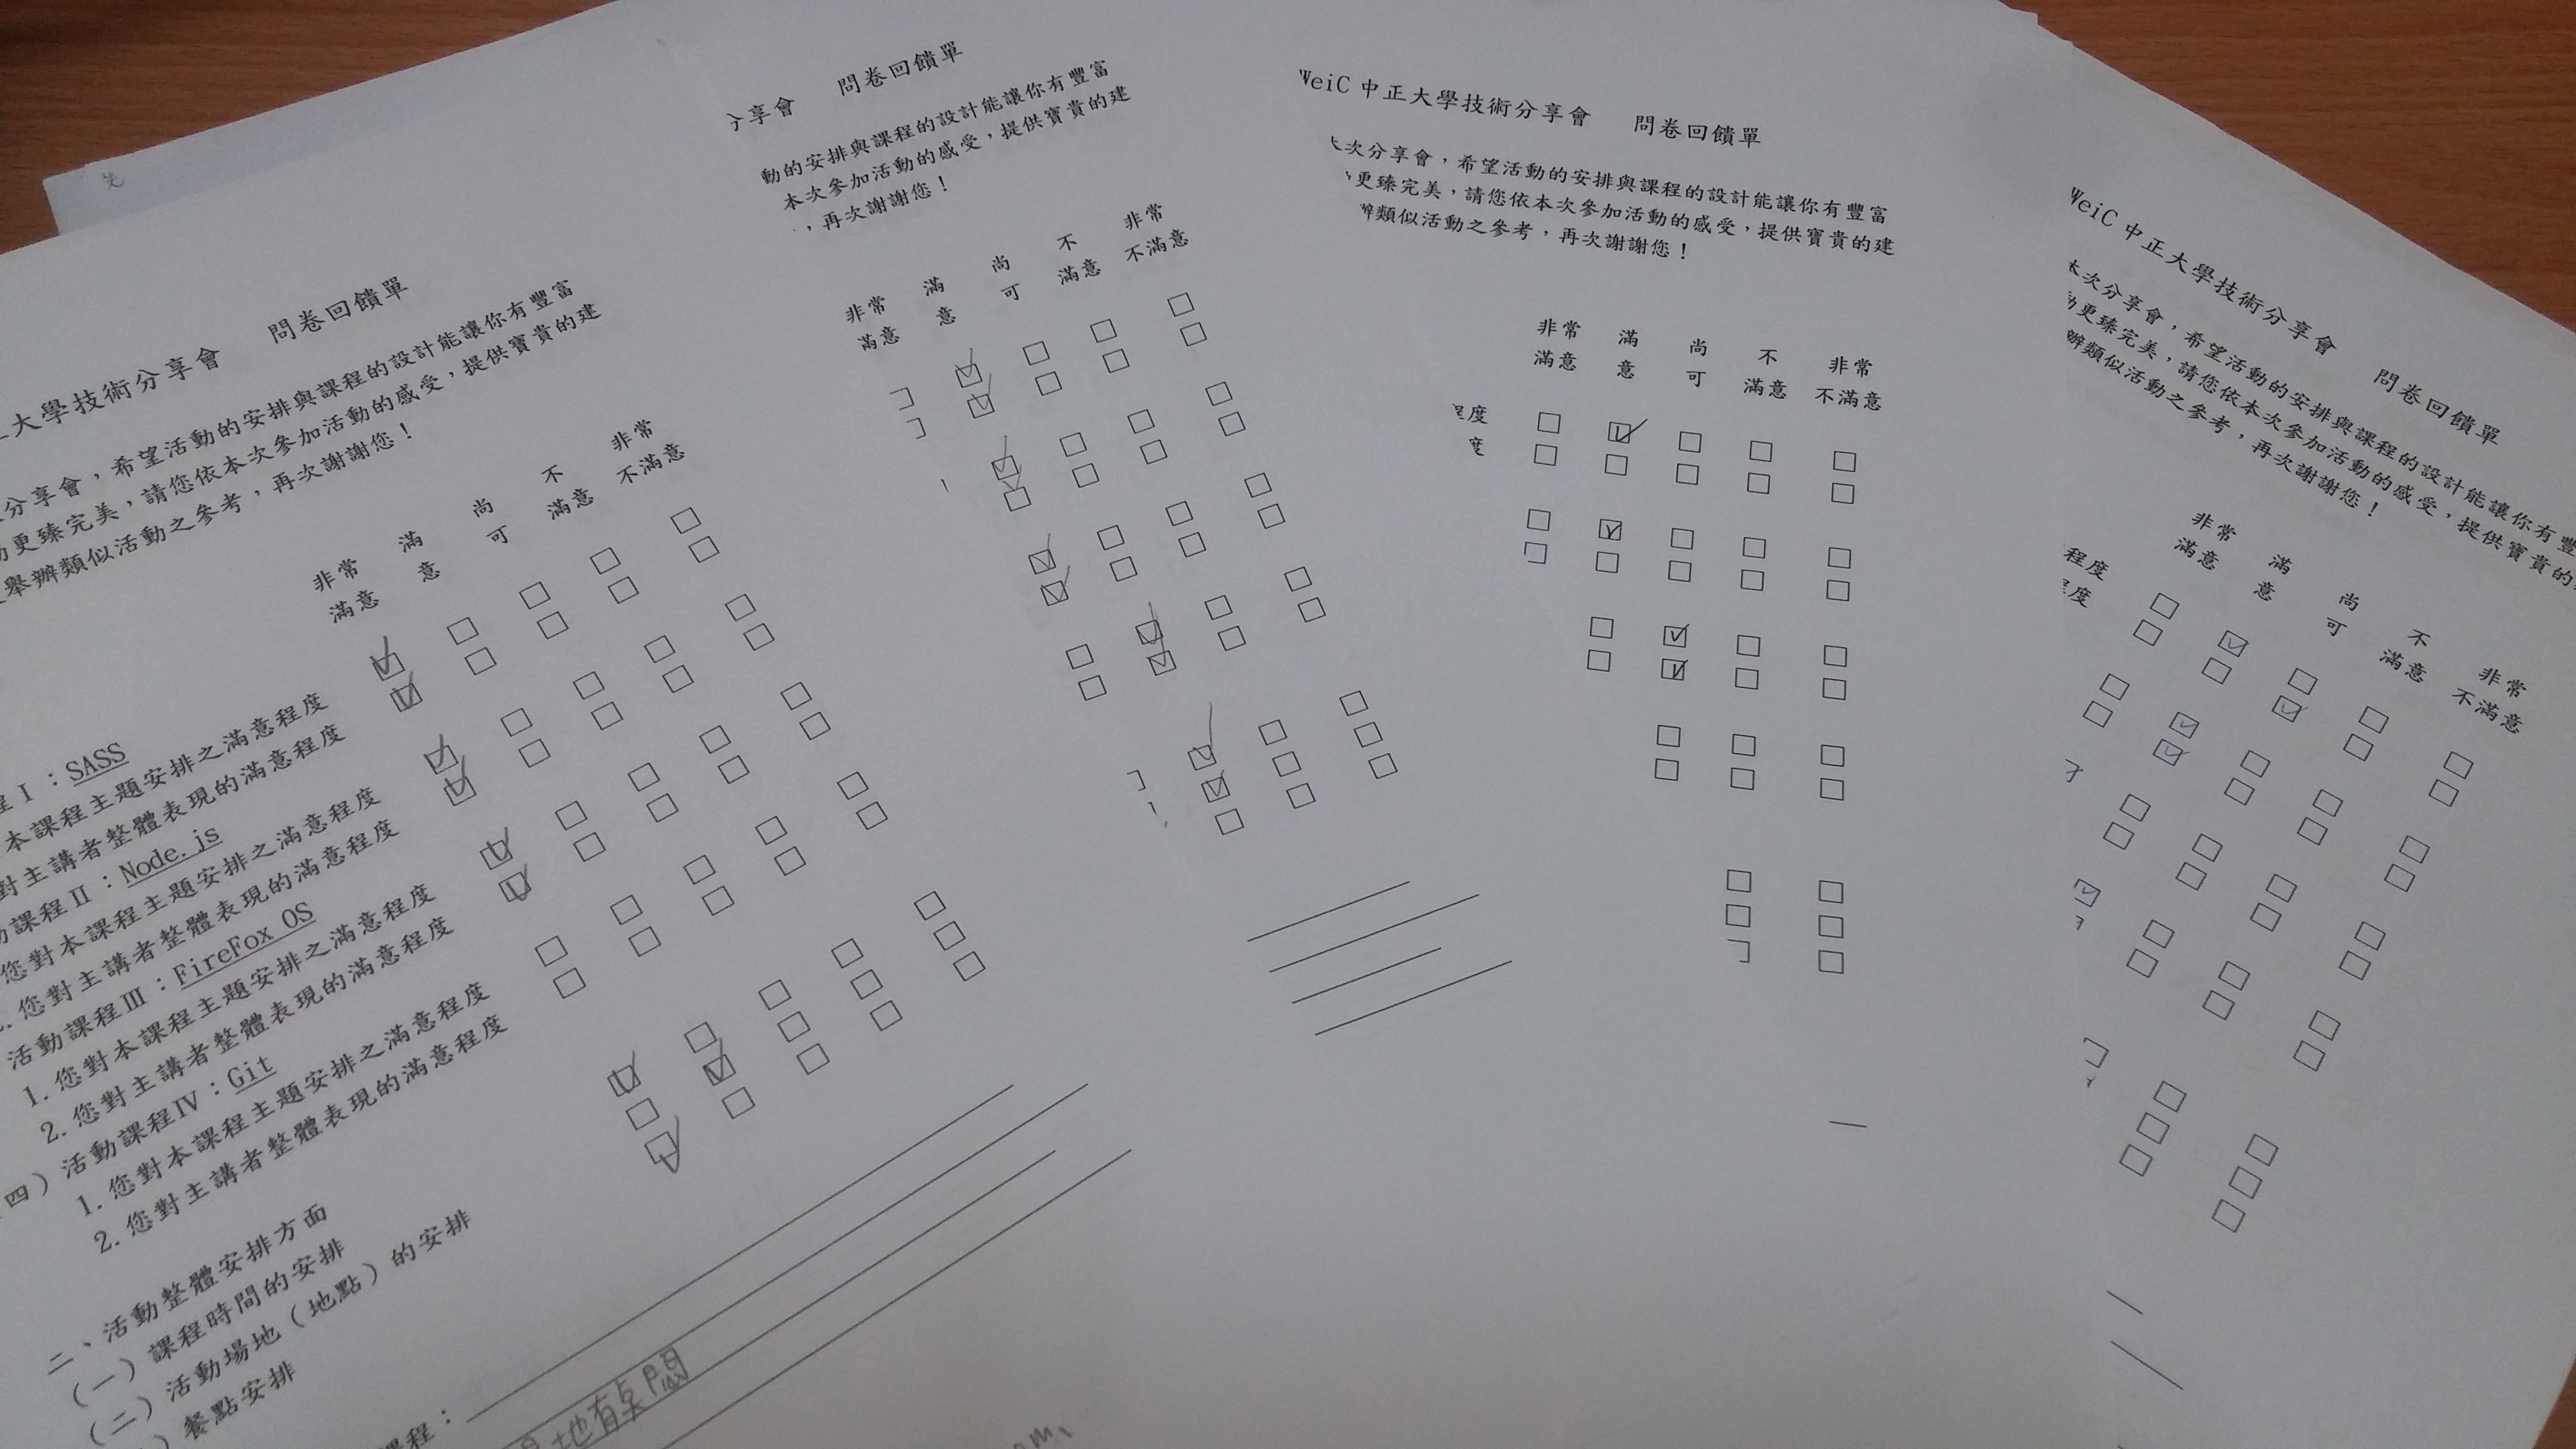 先
大學技術分享會 問卷回饋單
分享會，希望活動的安排與課程的設計能讓你有豐富
更臻完美，請您依本次參加活動的感受，提供寶貴的建
舉辦類似活動之參考，再次謝謝您！
非常 滿 尚 不 非常
滿意 意 可 滿意 不滿意
程Ⅰ：SASS
本課程主題安排之滿意程度
對主講者整體表現的滿意程度
課程Ⅱ：Node.js
您對本課程主題安排之滿意程度
您對主講者整體表現的滿意程度
活動課程Ⅲ：FireFox OS
1. 您對本課程主題安排之滿意程度
2. 您對主講者整體表現的滿意程度
四）活動課程Ⅳ：Git
1. 您對本課程主題安排之滿意程度
2. 您對主講者整體表現的滿意程度
二、活動整體安排方面
（一）課程時間的安排
（二）活動場地（地點）的安排
）餐點安排
課程：
地有點悶
分享會 問卷回饋單
動的安排與課程的設計能讓你有豐富
本次參加活動的感受，提供寶貴的建
，再次謝謝您！
非常 滿 尚 不 非常
滿意 意 可 滿意 不滿意
WeiC 中正大學技術分享會 問卷回饋單
次分享會，希望活動的安排與課程的設計能讓你有豐富
更臻完美，請您依本次參加活動的感受，提供寶貴的建
辦類似活動之參考，再次謝謝您！
非常 滿 尚 不 非常
滿意 意 可 滿意 不滿意
程度
度
WeiC 中正大學技術分享會 問卷回饋單
本次分享會，希望活動的安排與課程的設計能讓你有豐
動更臻完美，請您依本次參加活動的感受，提供寶貴的
辦類似活動之參考，再次謝謝您！
非常 滿 尚 不 非常
滿意 意 可 滿意 不滿意
程度
程度